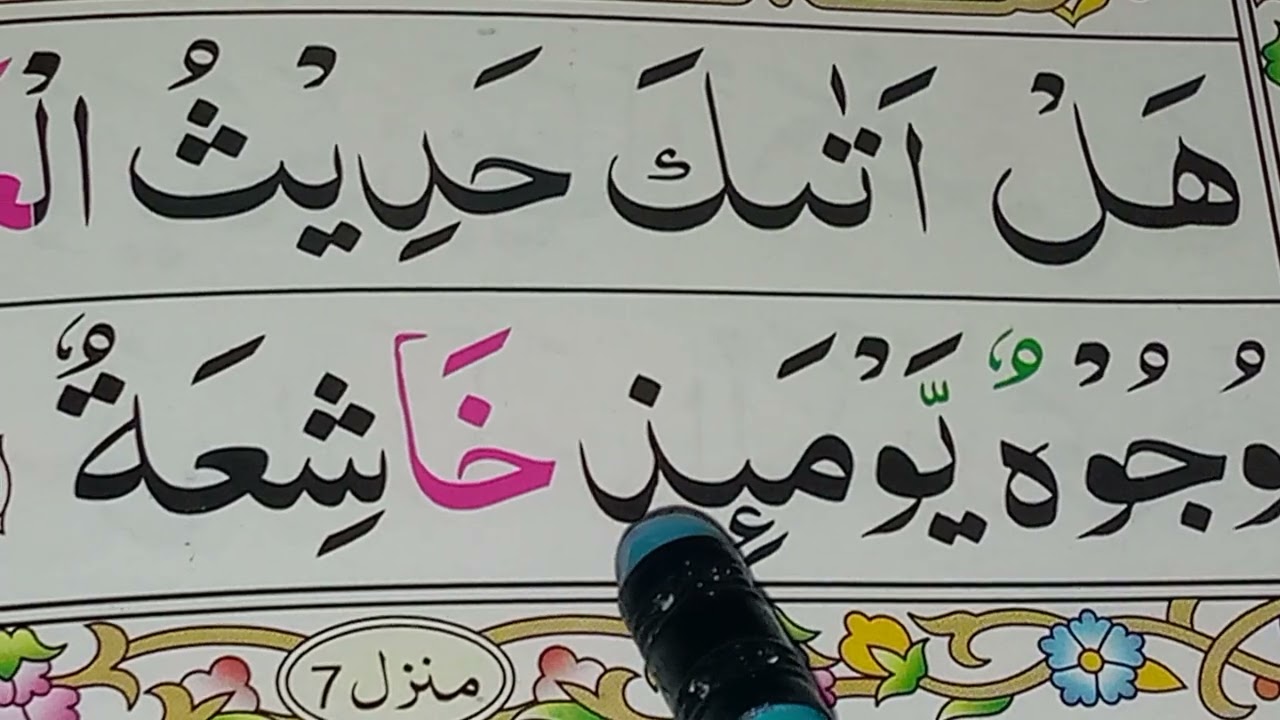 هَلْ اَتٰىكَ حَدِيْثُ الْغ
وُجُوْهٌ يَّوْمَئِذٍ خَاشِعَةٌ
منزل 7